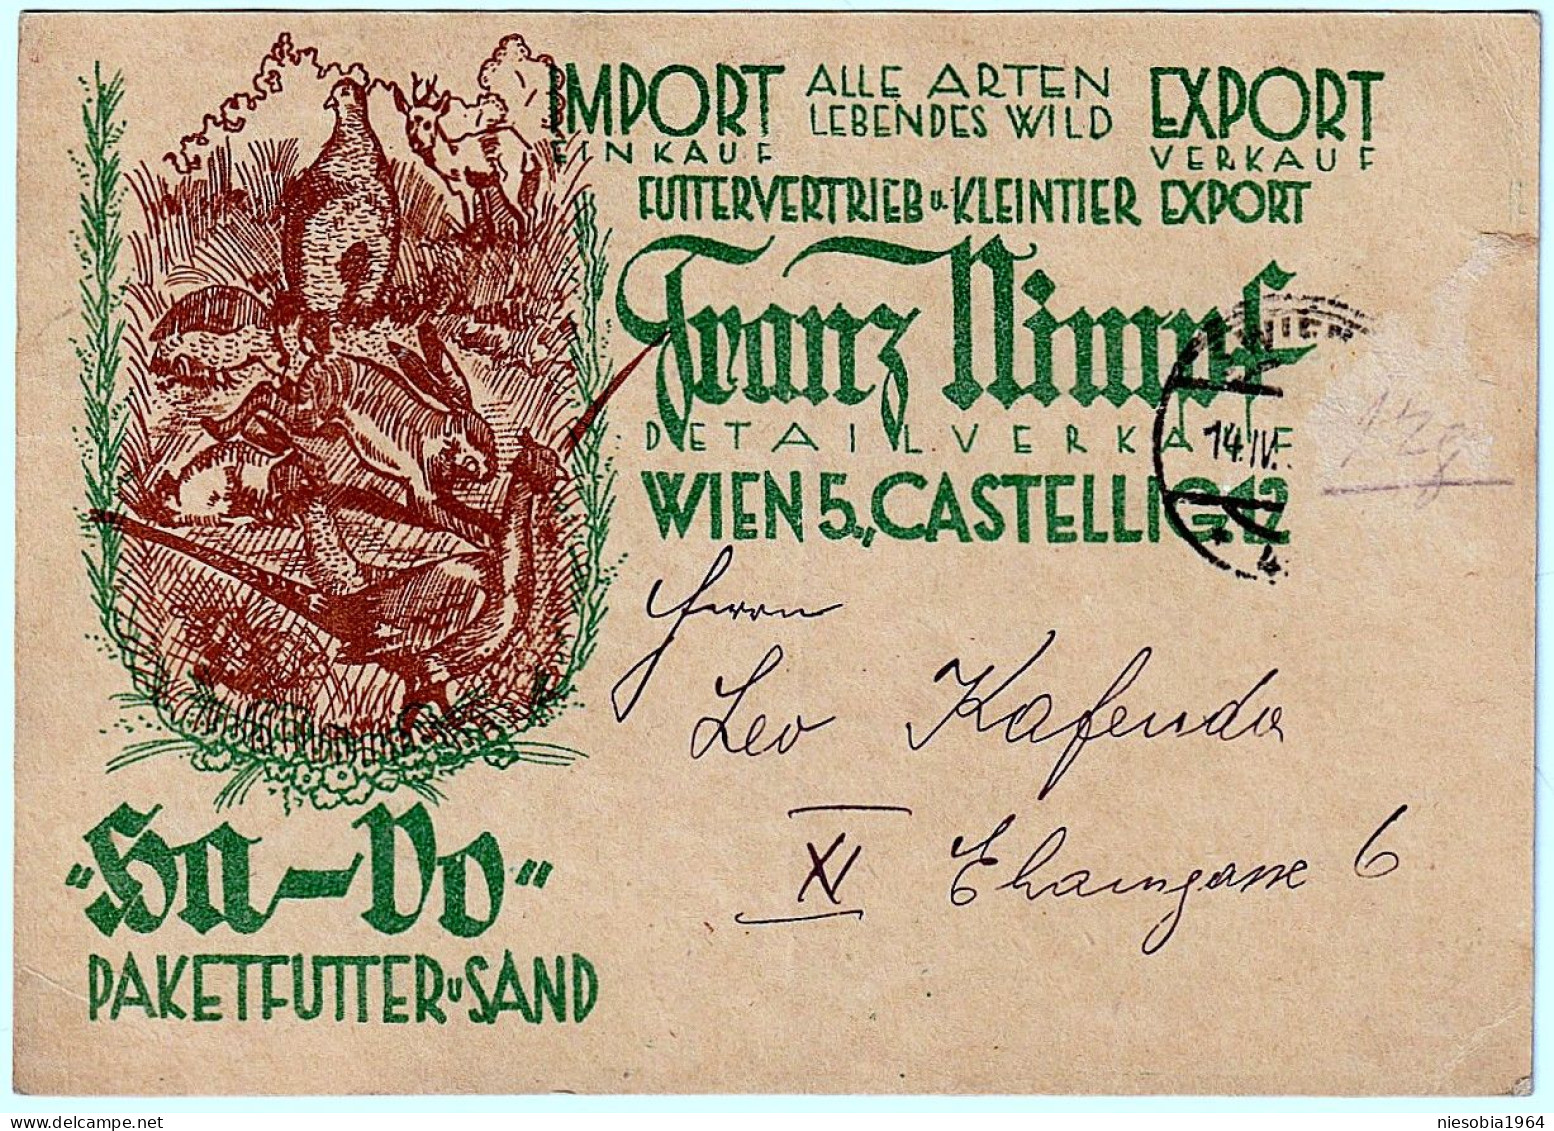 IMPORT ALLE ARTEN EXPORT
EINKAUF LEBENDES WILD VERKAUF
FUTTERVERTRIEB u. KLEINTIER EXPORT
Franz Nimpf
DETAILVERKAUF
WIEN 5., CASTELLIG. 12
WIEN
14. IV.
* 4
Herrn
Leo Kafenda
XI
6
"Ha-Vo"
PAKETFUTTER u SAND
niesobia1964
delcampe.net